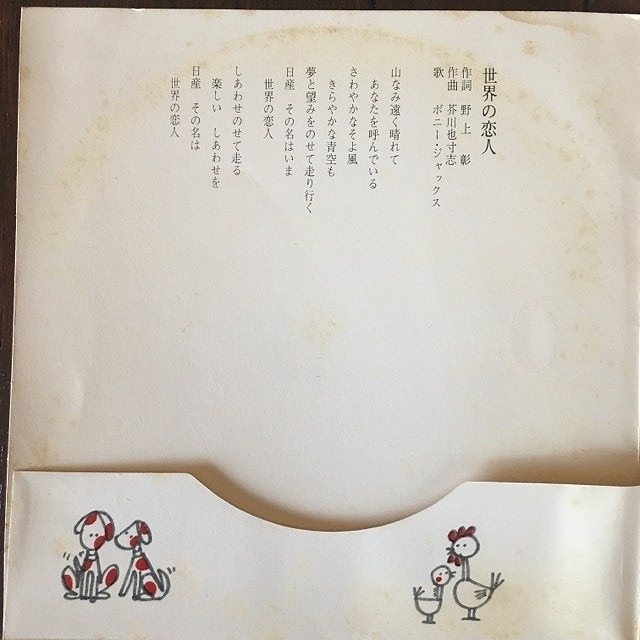 世界の恋人
作詞 野上 彰
作曲 芥川也寸志
歌 ボニー・ジャックス
山なみ遠く晴れて
あなたを呼んでいる
さわやかなそよ風
きらやかな青空も
夢と望みをのせて走り行く
日産 その名はいま
世界の恋人
しあわせのせて走る
楽しい しあわせを
日産 その名は
世界の恋人